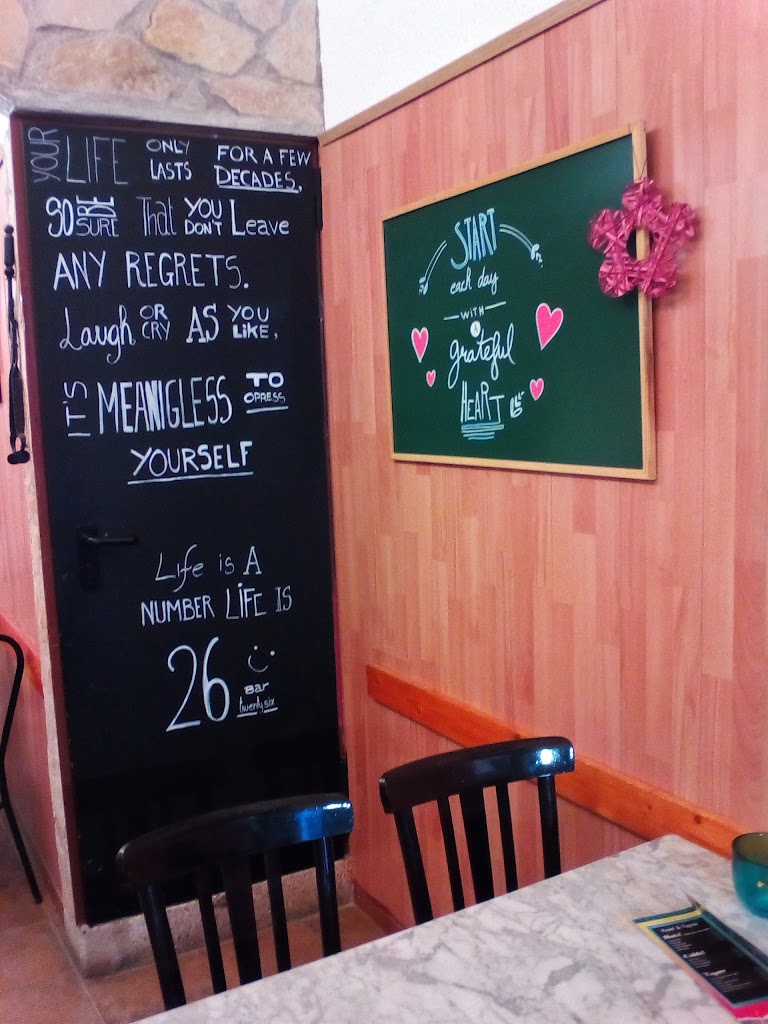 YOUR LIFE ONLY LASTS FOR A FEW DECADES,
SO BE SURE That YOU DON'T Leave
ANY REGRETS.
Laugh OR CRY AS YOU LIKE,
IT'S MEANIGLESS TO OPRESS
YOURSELF
Life is A
NUMBER LIFE IS
26
BAR
twenty six
START
each day
WITH
A
grateful
HEART
Food & Tapas
Tapas